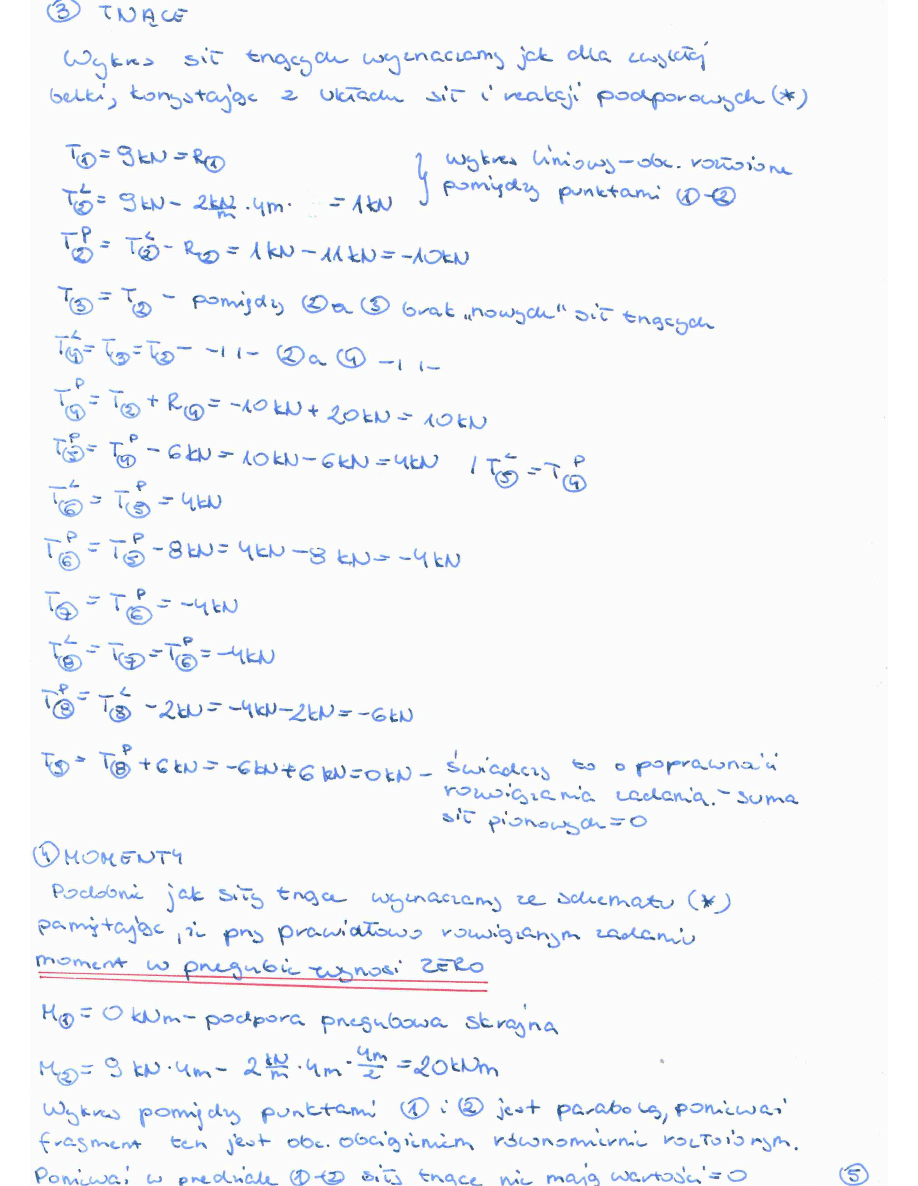 ③ TNĄCE
Wykres sił tnących wyznaczamy jak dla zwykłej
belki, korzystając z układu sił i reakcji podporowych (*)
T① = 9kN = R① } wykres liniowy – obc. rozłożone
T②ᴸ = 9kN – 2kN/m · 4m · = 1kN } pomiędzy punktami ①-②
T②ᴾ = T②ᴸ – R② = 1kN – 11kN = –10kN
T③ = T② – pomiędzy ② a ③ brak „nowych" sił tnących
T④ᴸ = T③ = T② – -||- ② a ④ -||-
T④ᴾ = T② + R④ = –10kN + 20kN = 10kN
T⑤ᴾ = T④ᴾ – 6kN = 10kN – 6kN = 4kN / T⑤ᴸ = T④ᴾ
T⑥ᴸ = T⑤ᴾ = 4kN
T⑥ᴾ = T⑤ᴾ – 8kN = 4kN – 8kN = –4kN
T⑦ = T⑥ᴾ = –4kN
T⑧ᴸ = T⑦ = T⑥ᴾ = –4kN
T⑧ᴾ = T⑧ᴸ – 2kN = –4kN – 2kN = –6kN
T⑨ = T⑧ᴾ + 6kN = –6kN + 6kN = 0kN – świadczy to o poprawności
rozwiązania zadania. – suma
sił pionowych = 0
④ MOMENTY
Podobnie jak siły tnące wyznaczamy ze schematu (*)
pamiętając, iż przy prawidłowo rozwiązanym zadaniu
moment w przegubie wynosi ZERO
M① = 0 kNm – podpora przegubowa skrajna
M② = 9 kN · 4m – 2 kN/m · 4m · 4m/2 = 20kNm
Wykres pomiędzy punktami ① i ② jest parabolą, ponieważ
fragment ten jest obc. obciążeniem równomiernie rozłożonym.
Ponieważ w przedziale ①-② siły tnące nie mają wartości = 0 ⑤